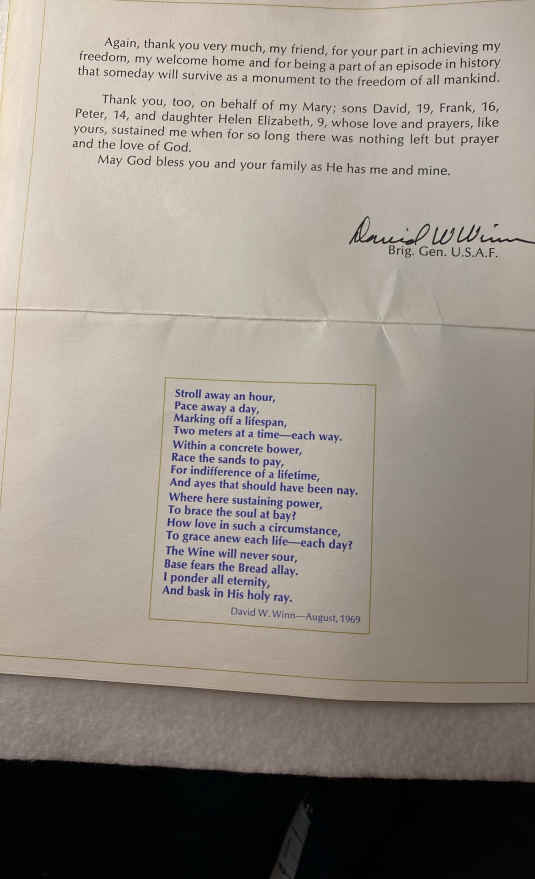 Again, thank you very much, my friend, for your part in achieving my
freedom, my welcome home and for being a part of an episode in history
that someday will survive as a monument to the freedom of all mankind.
Thank you, too, on behalf of my Mary; sons David, 19, Frank, 16,
Peter, 14, and daughter Helen Elizabeth, 9, whose love and prayers, like
yours, sustained me when for so long there was nothing left but prayer
and the love of God.
May God bless you and your family as He has me and mine.
David W Winn
Brig. Gen. U.S.A.F.
Stroll away an hour,
Pace away a day,
Marking off a lifespan,
Two meters at a time—each way.
Within a concrete bower,
Race the sands to pay,
For indifference of a lifetime,
And ayes that should have been nay.
Where here sustaining power,
To brace the soul at bay?
How love in such a circumstance,
To grace anew each life—each day?
The Wine will never sour,
Base fears the Bread allay.
I ponder all eternity,
And bask in His holy ray.
David W. Winn—August, 1969